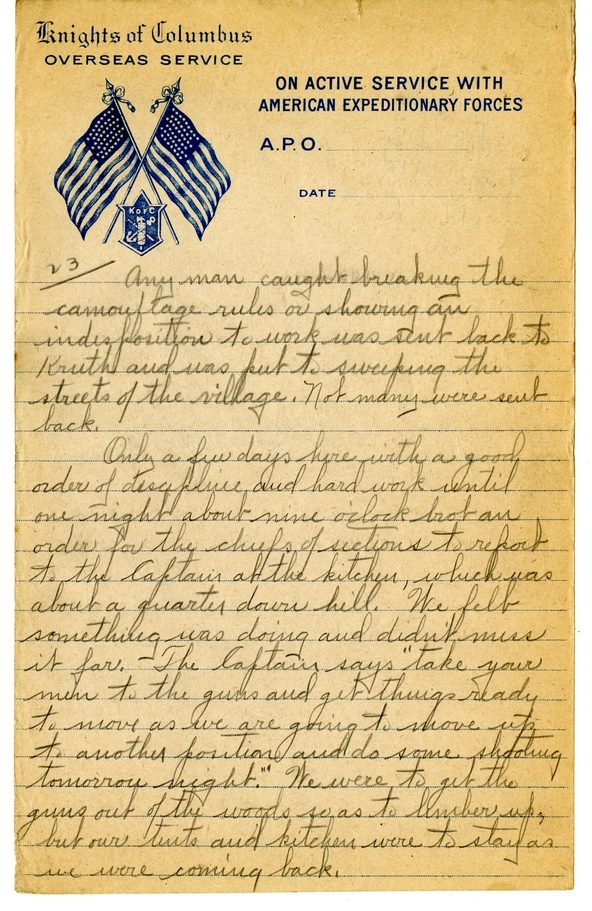 Knights of Columbus
OVERSEAS SERVICE
ON ACTIVE SERVICE WITH
AMERICAN EXPEDITIONARY FORCES
A.P.O.
DATE
K of C
23
Any man caught breaking the
camouflage rules or showing an
indisposition to work was sent back to
Kruth and was put to sweeping the
streets of the village. Not many were sent
back.
Only a few days here with a good
order of descipline and hard work until
one night about nine oclock brot an
order for the chiefs of sections to report
to the Captain at the kitchen, which was
about a quarter down hill. We felt
something was doing and didn't miss
it far. The Captain says "take your
men to the guns and get things ready
to move as we are going to move up
to another position and do some shooting
tomorrow night." We were to get the
guns out of the woods so as to limber up,
but our tents and kitchen were to stay as
we were coming back.